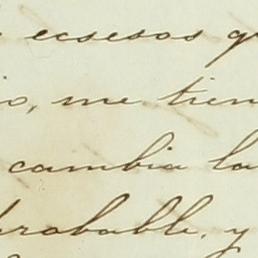 ecsesos q
io, me tien
cambia la
probable, y